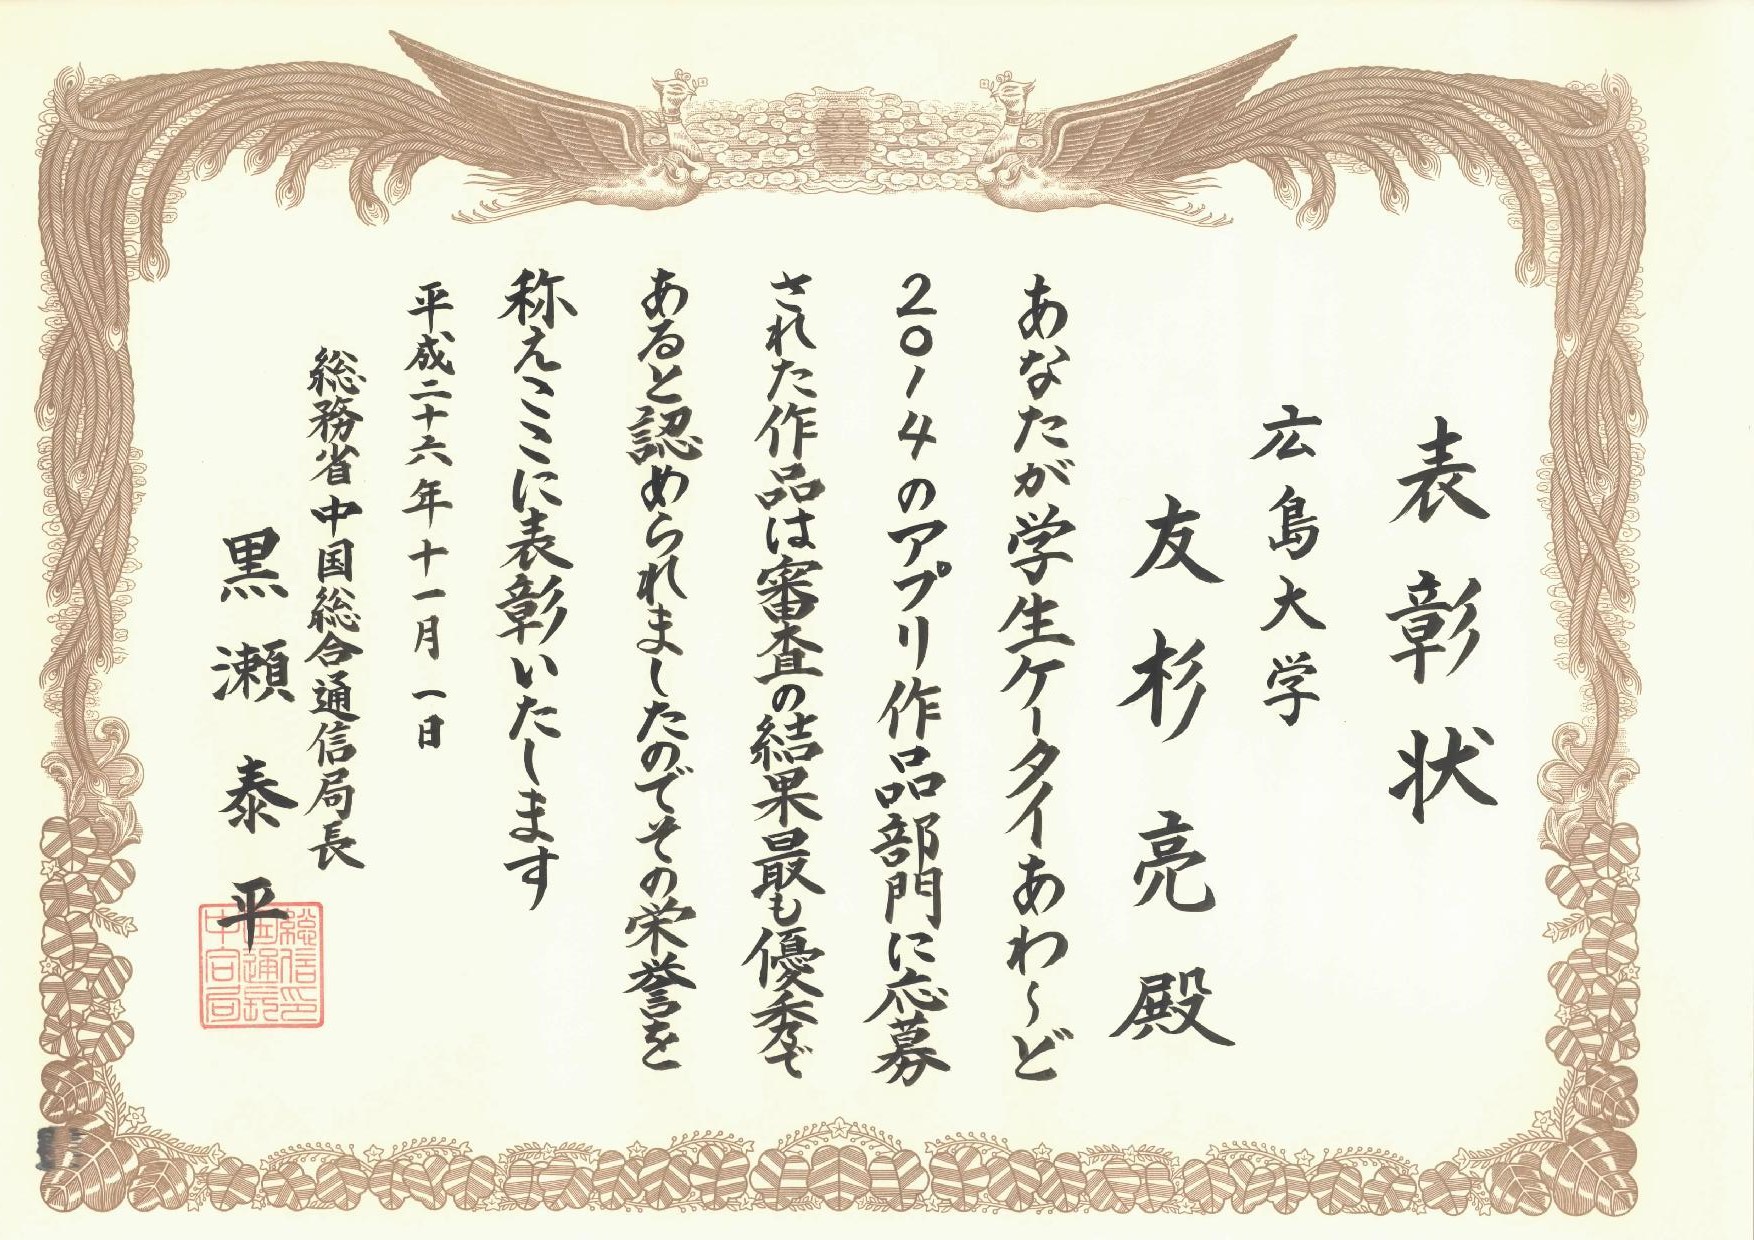 表彰状
広島大学
友杉亮殿
あなたが学生ケータイあわ~ど
2014のアプリ作品部門に応募
された作品は審査の結果最も優秀で
あると認められましたのでその栄誉を
称えここに表彰いたします
平成二十六年十一月一日
総務省中国総合通信局長
黒瀬泰平